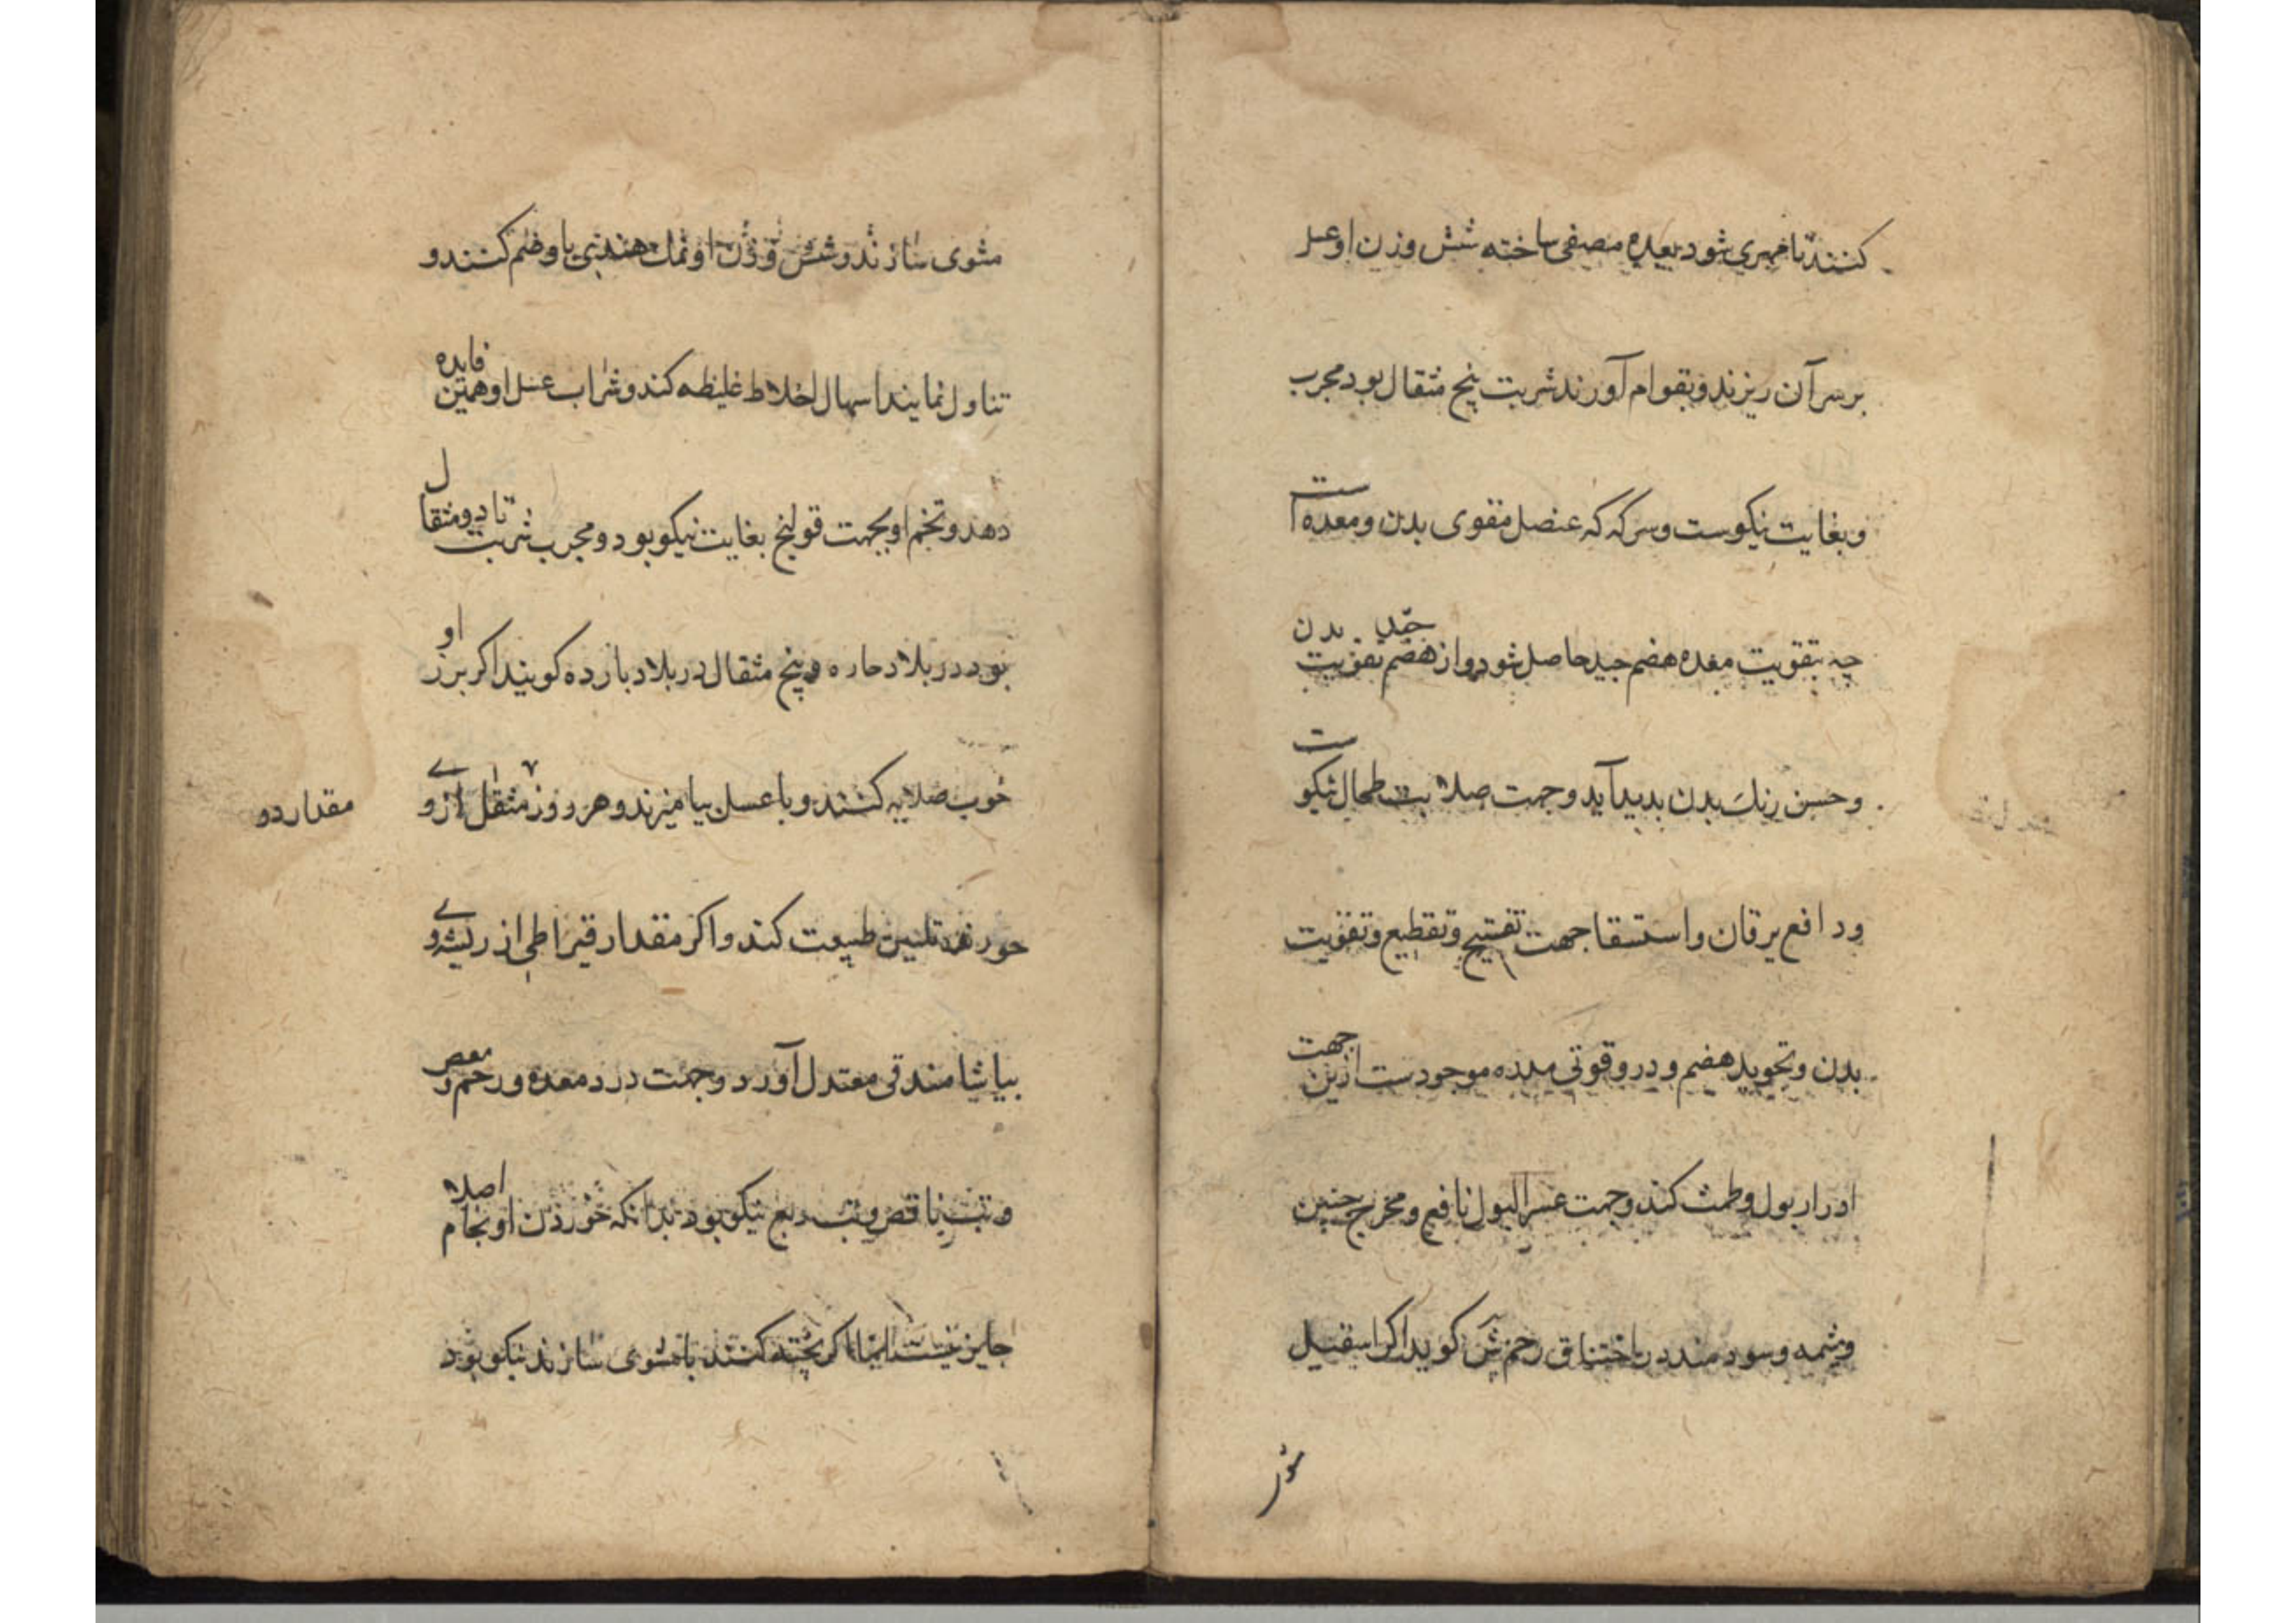 کنند تا مهری شود بعده مصفی ساخته شش وزن او عسل
بر سر آن ریزند و بقوام آورند شربت پنج مثقال بود مجرب
و بغایت نیکوست و سرکه که عنصل مقوی بدن و معده است
چه بتقویت معده هضم جید حاصل شود و از هضم جید تقویت بدن
و حسن رنک بدن بدید آید و جهت صلابت طحال نیکوست
و دافع یرقان و استسقا جهت تفتیح و تقطیع و تقویت
بدن و تجوید هضم و در و قوتی ملده موجودست ازین جهت
ادرار بول و طمث کند و جهت عسر البول نافع و مخرج جنین
و شمه و سودمند در اختناق رحم ش کوید اکر اسقیل
شور
مشوی سازند و شش وزن او نمک هندی با و ضم کنند و
تناول نمایند اسهال اخلاط غلیظه کند و شراب عسل او همین فایده
دهد و تخم او بجهت قولنج بغایت نیکو بود و مجرب شربت تا دو مثقال
بود در بلاد حاره و پنج مثقال در بلاد بارده کویند اکر برز او
خوب صلایه کنند و با عسل بیامیزند و هر روز مثقالی از و
مقدار دو
خورند تلیین طبیعت کند و اکر مقدار قیراطی از ریشه وی
بیاشامند قی معتدل آورد و جهت درد معده و رحم و مغص
و تب ناقص و تب ربع نیکو بود بدانکه خوردن او بخام اصلا
جایز نیست اما اکر پخته کنند یا مشوی سازند نیکو بود